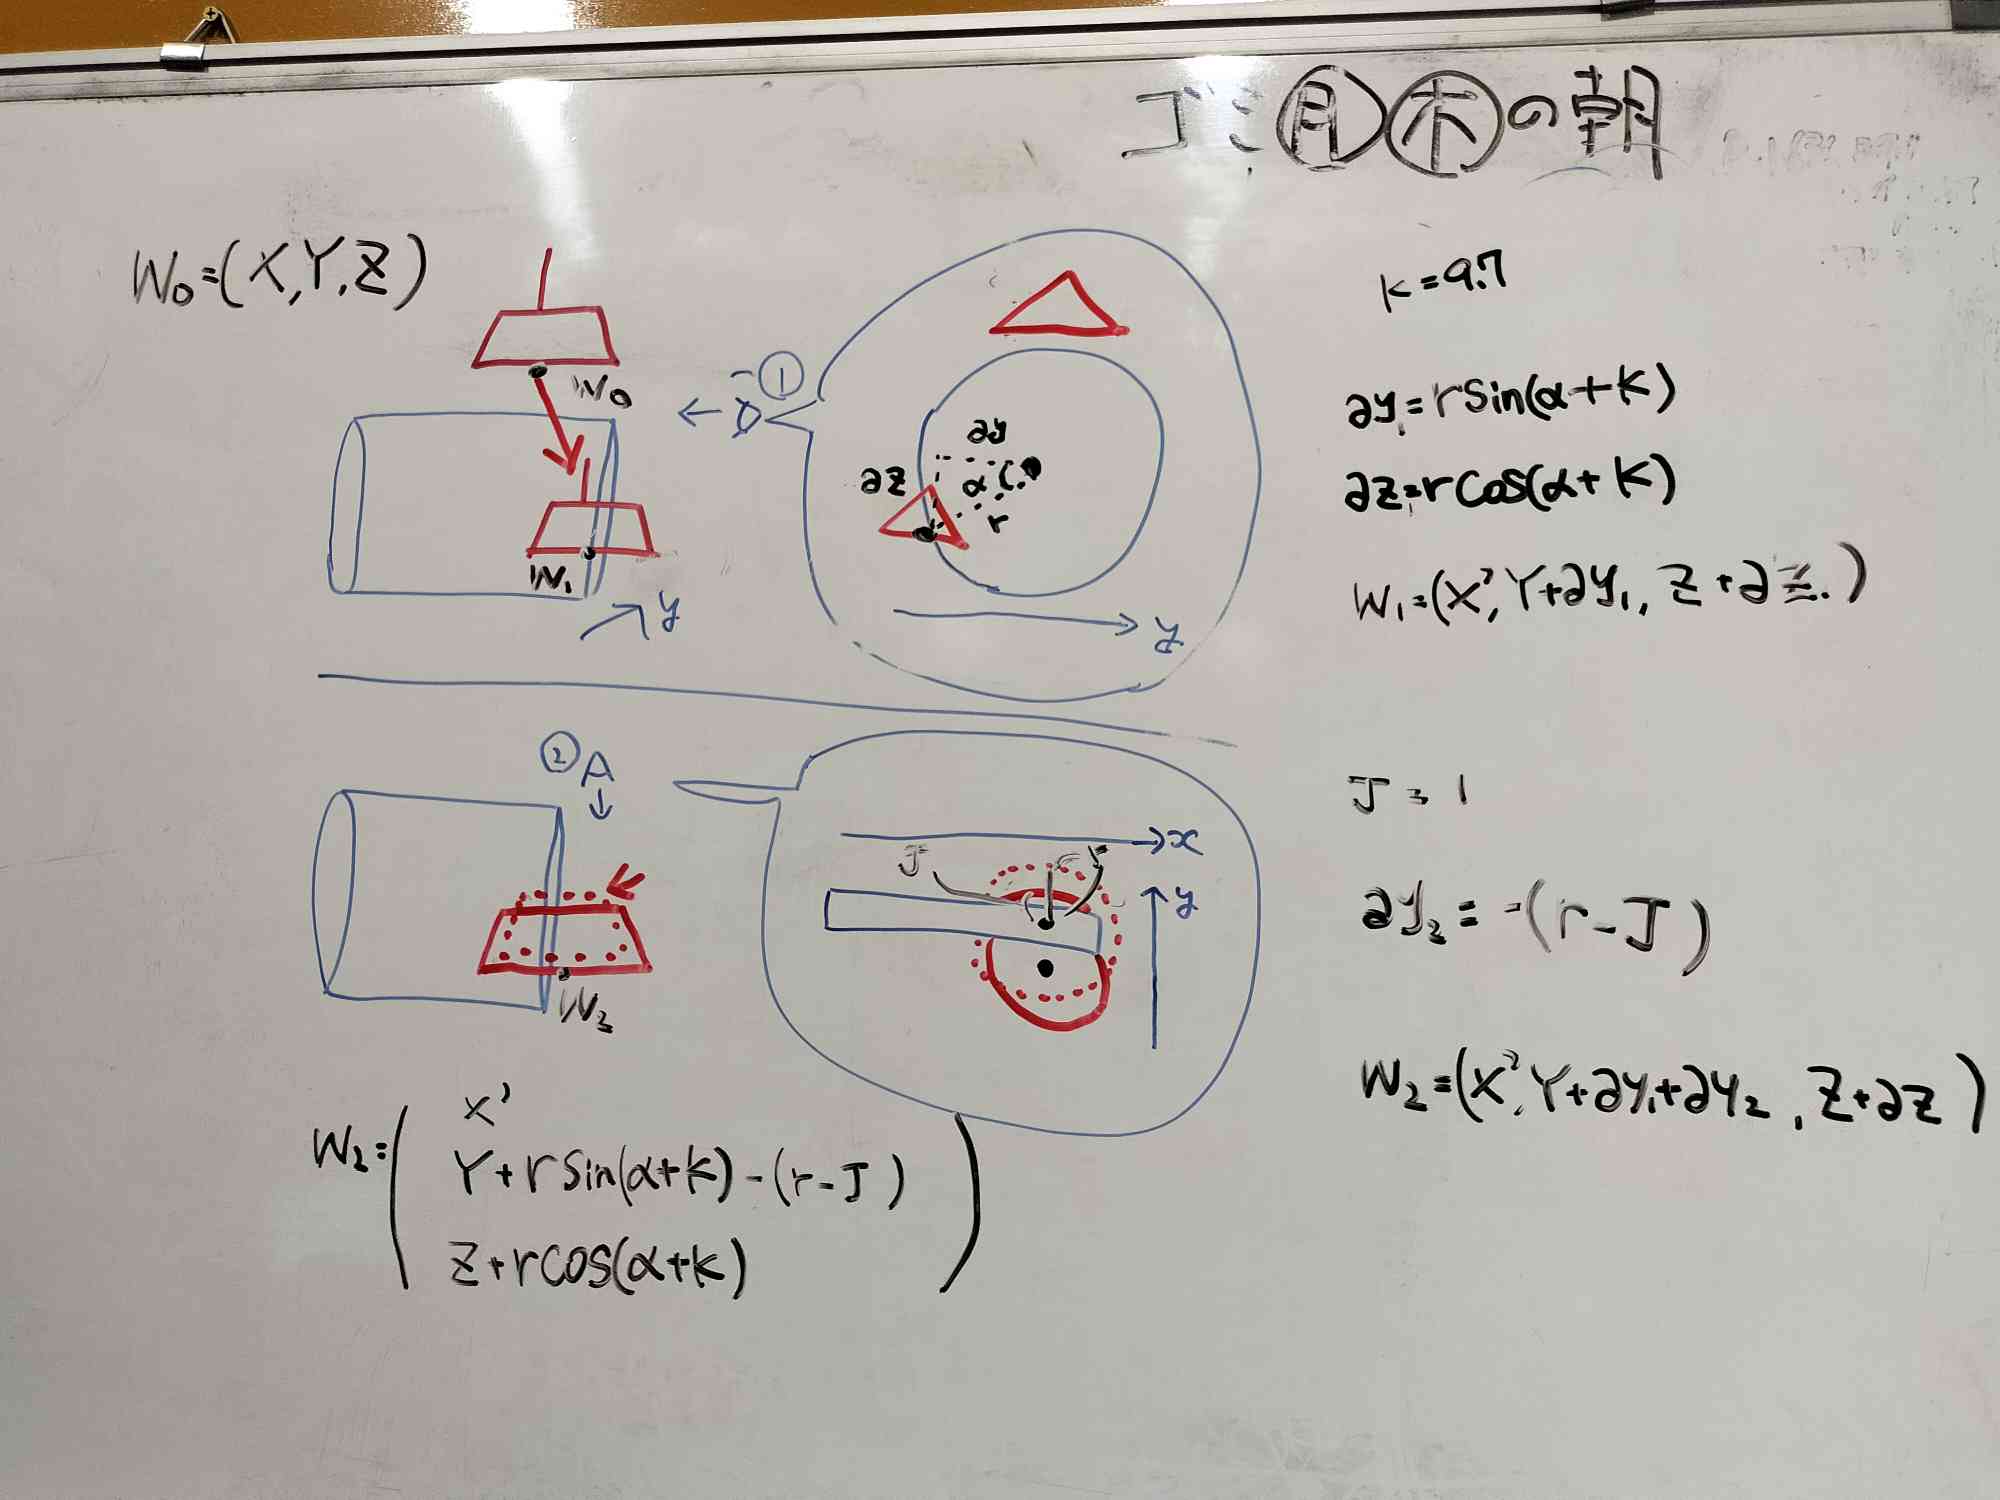 ゴミ㊊㊍の朝
W₀=(X,Y,Z)
W₀
W₁
y
①
∂y
∂z
α
r
y
K=9.7
∂y₁=rsin(α+K)
∂z₁=rcos(α+K)
W₁=(X',Y+∂y₁,Z+∂z₁)
②A
J
r
x
y
J=1
∂y₂=-(r-J)
W₂=(X',Y+∂y₁+∂y₂,Z+∂z)
W₂=
X'
Y+rsin(α+K)-(r-J)
Z+rcos(α+K)